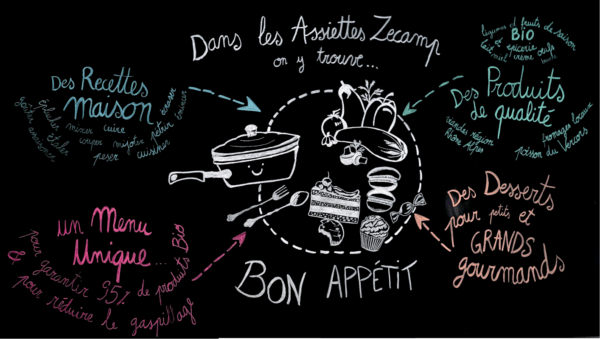 Dans les Assiettes Zecamp
on y trouve...
Des Recettes
Maison
écraser
émincer
éplucher
étaler
goûter
assaisonner
mixer cuire
couper mijoter pétrir
peser cuisiner
légumes et fruits de saison
BIO
épicerie
lait crème oeufs
miel
Des Produits
de qualité
viandes région
Rhône Alpes
fromages locaux
poisson du Vercors
un Menu
Unique...
pour garantir 95% de produits Bio
& pour réduire le gaspillage
Des Desserts
pour petits et
GRANDS
gourmands
BON APPÉTIT